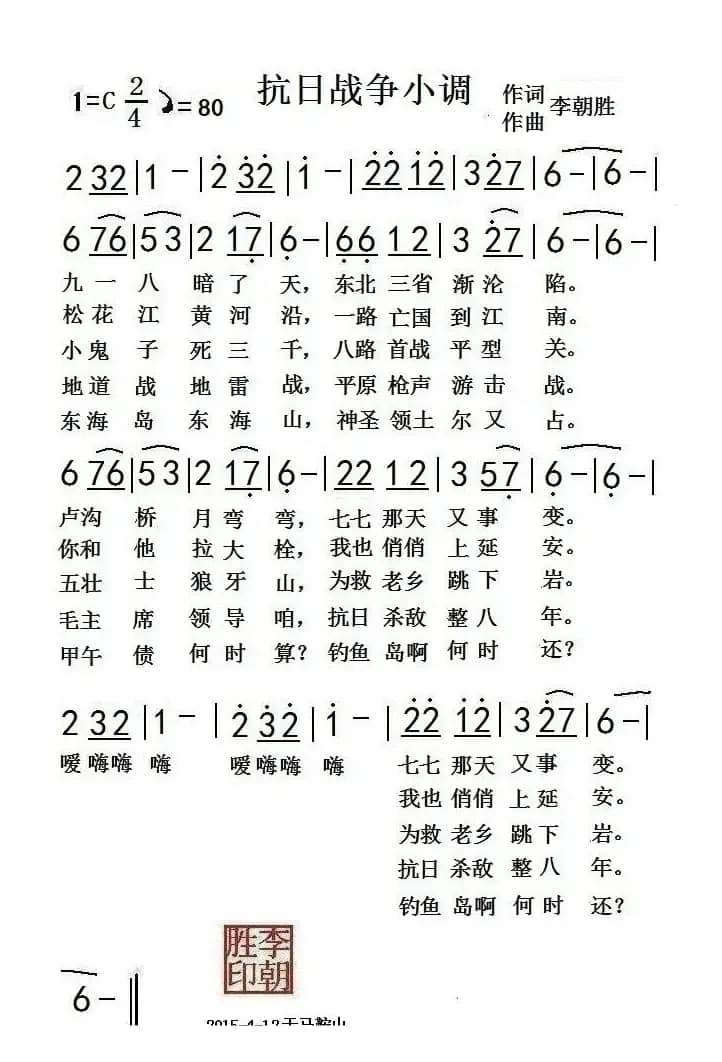 抗日战争小调
1=C 2/4 ♪=80 作词 作曲 李朝胜
2 32|1 －|2̇ 3̇2̇|1̇ －|2̇2̇ 1̇2̇|3 2̇7|6－|6－|
6 76|5 3|2 17̣|6̣－|6̣6̣ 12|3 2̇7|6－|6－|
九一八暗了天，东北三省渐沦陷。
松花江黄河沿，一路亡国到江南。
小鬼子死三千，八路首战平型关。
地道战地雷战，平原枪声游击战。
东海岛东海山，神圣领土尔又占。
6 76|5 3|2 17̣|6̣－|22 12|3 57̣|6̣－|6̣－|
卢沟桥月弯弯，七七那天又事变。
你和他拉大栓，我也俏俏上延安。
五壮士狼牙山，为救老乡跳下岩。
毛主席领导咱，抗日杀敌整八年。
甲午债何时算？钓鱼岛啊何时还？
2 32|1－| 2̇ 3̇2̇|1̇－| 2̇2̇ 1̇2̇|3 2̇7|6－|
嗳嗨嗨嗨 嗳嗨嗨嗨 七七那天又事变。
我也俏俏上延安。
为救老乡跳下岩。
抗日杀敌整八年。
钓鱼岛啊何时还？
李朝胜印
6－‖
2015-4-12于马鞍山